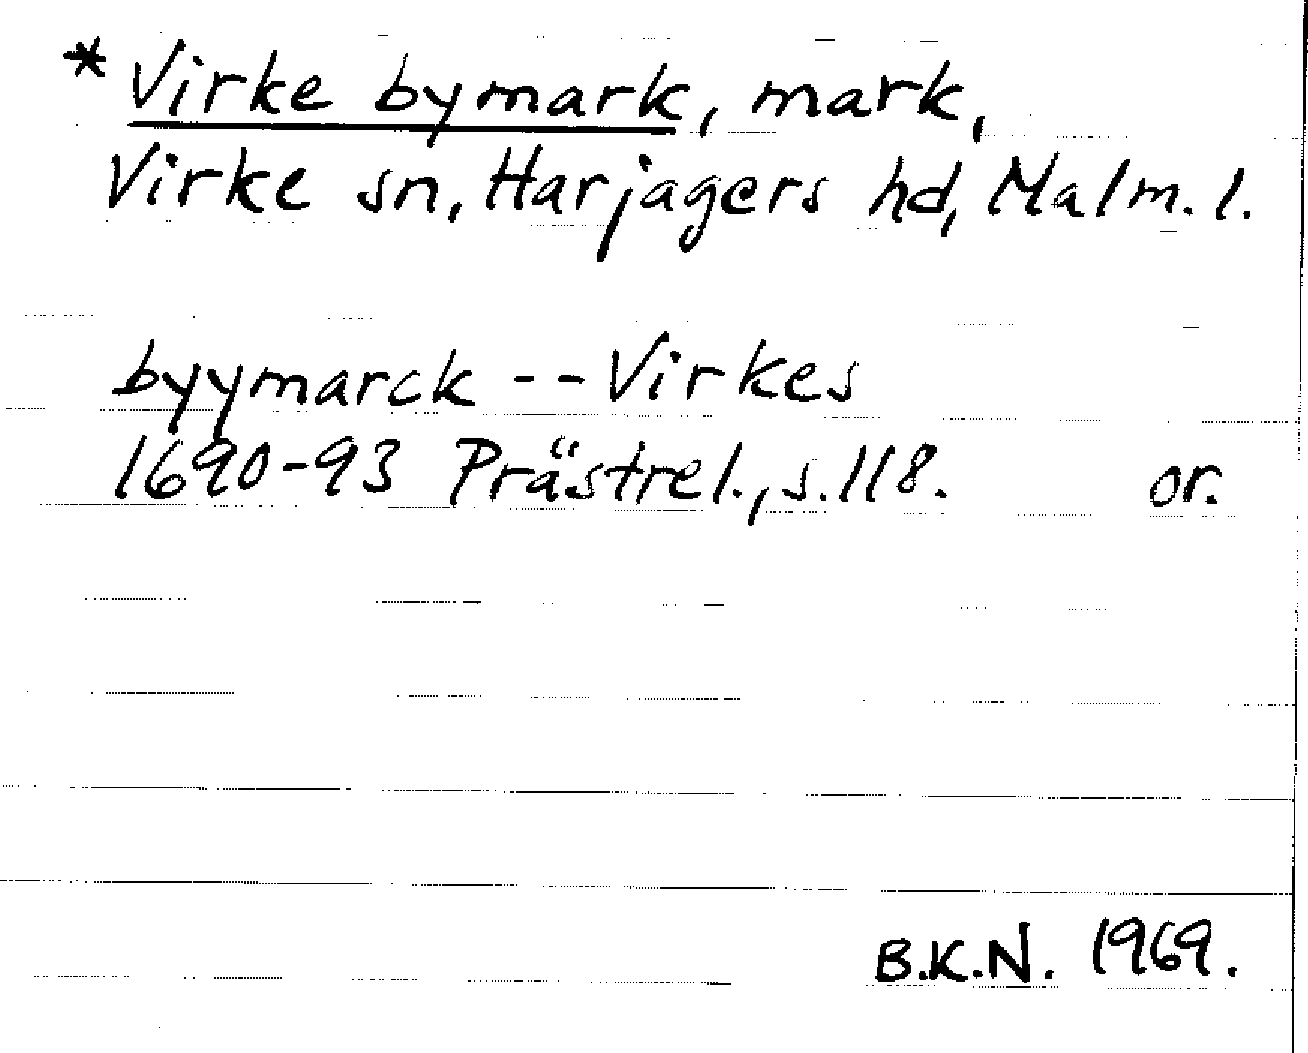 * Virke bymark, mark,
Virke sn, Harjagers hd, Malm. l.
byymarck -- Virkes
1690-93 Prästrel., s.118. or.
B.K.N. 1969.